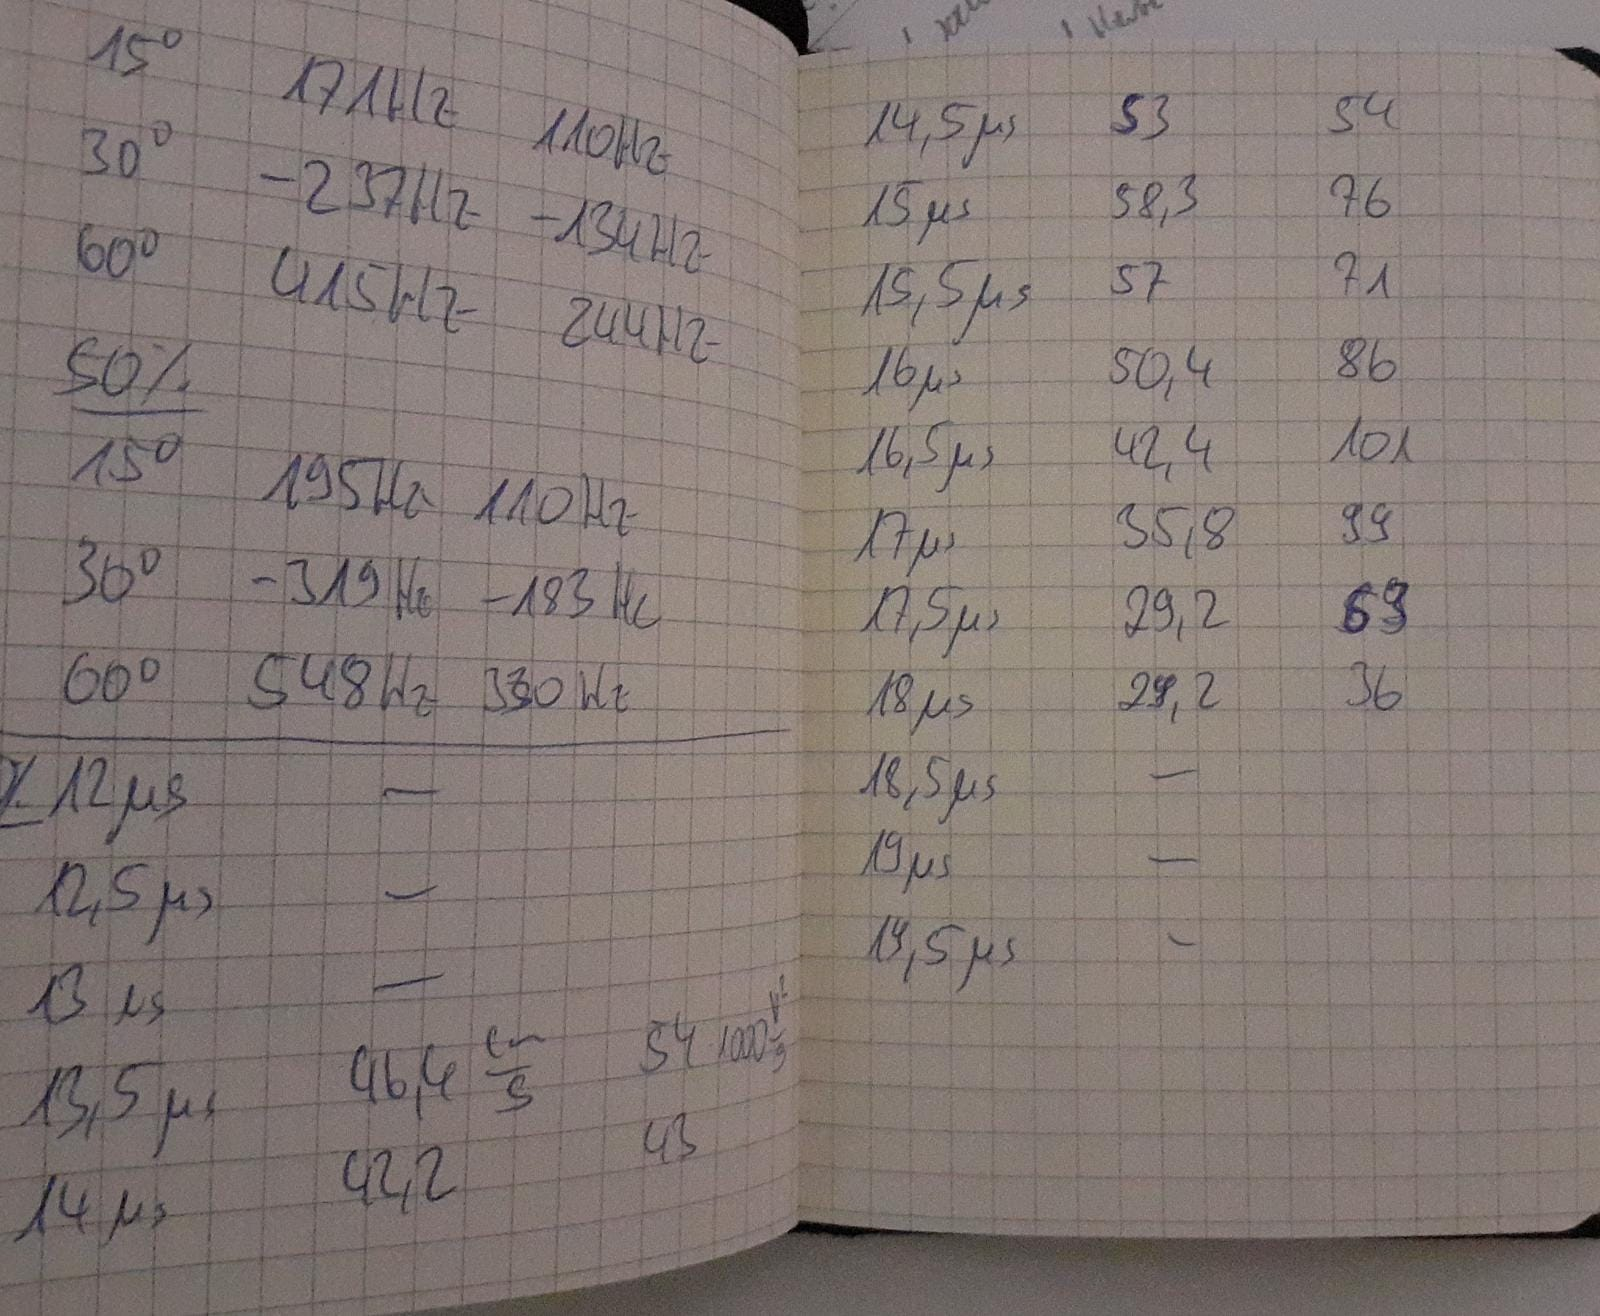 15° 171Hz 110Hz
30° -237Hz -134Hz
60° 415Hz 244Hz
50%
15° 195Hz 110Hz
30° -319Hz -183Hz
60° 548Hz 330Hz
12μs —
12,5μs —
13 μs —
13,5μs 46,4 cm/s 54 ·1000
14μs 42,2 43
14,5μs 53 54
15μs 58,3 76
15,5μs 57 71
16μs 50,4 86
16,5μs 42,4 101
17μs 35,8 99
17,5μs 29,2 69
18μs 29,2 36
18,5μs —
19μs —
19,5μs -